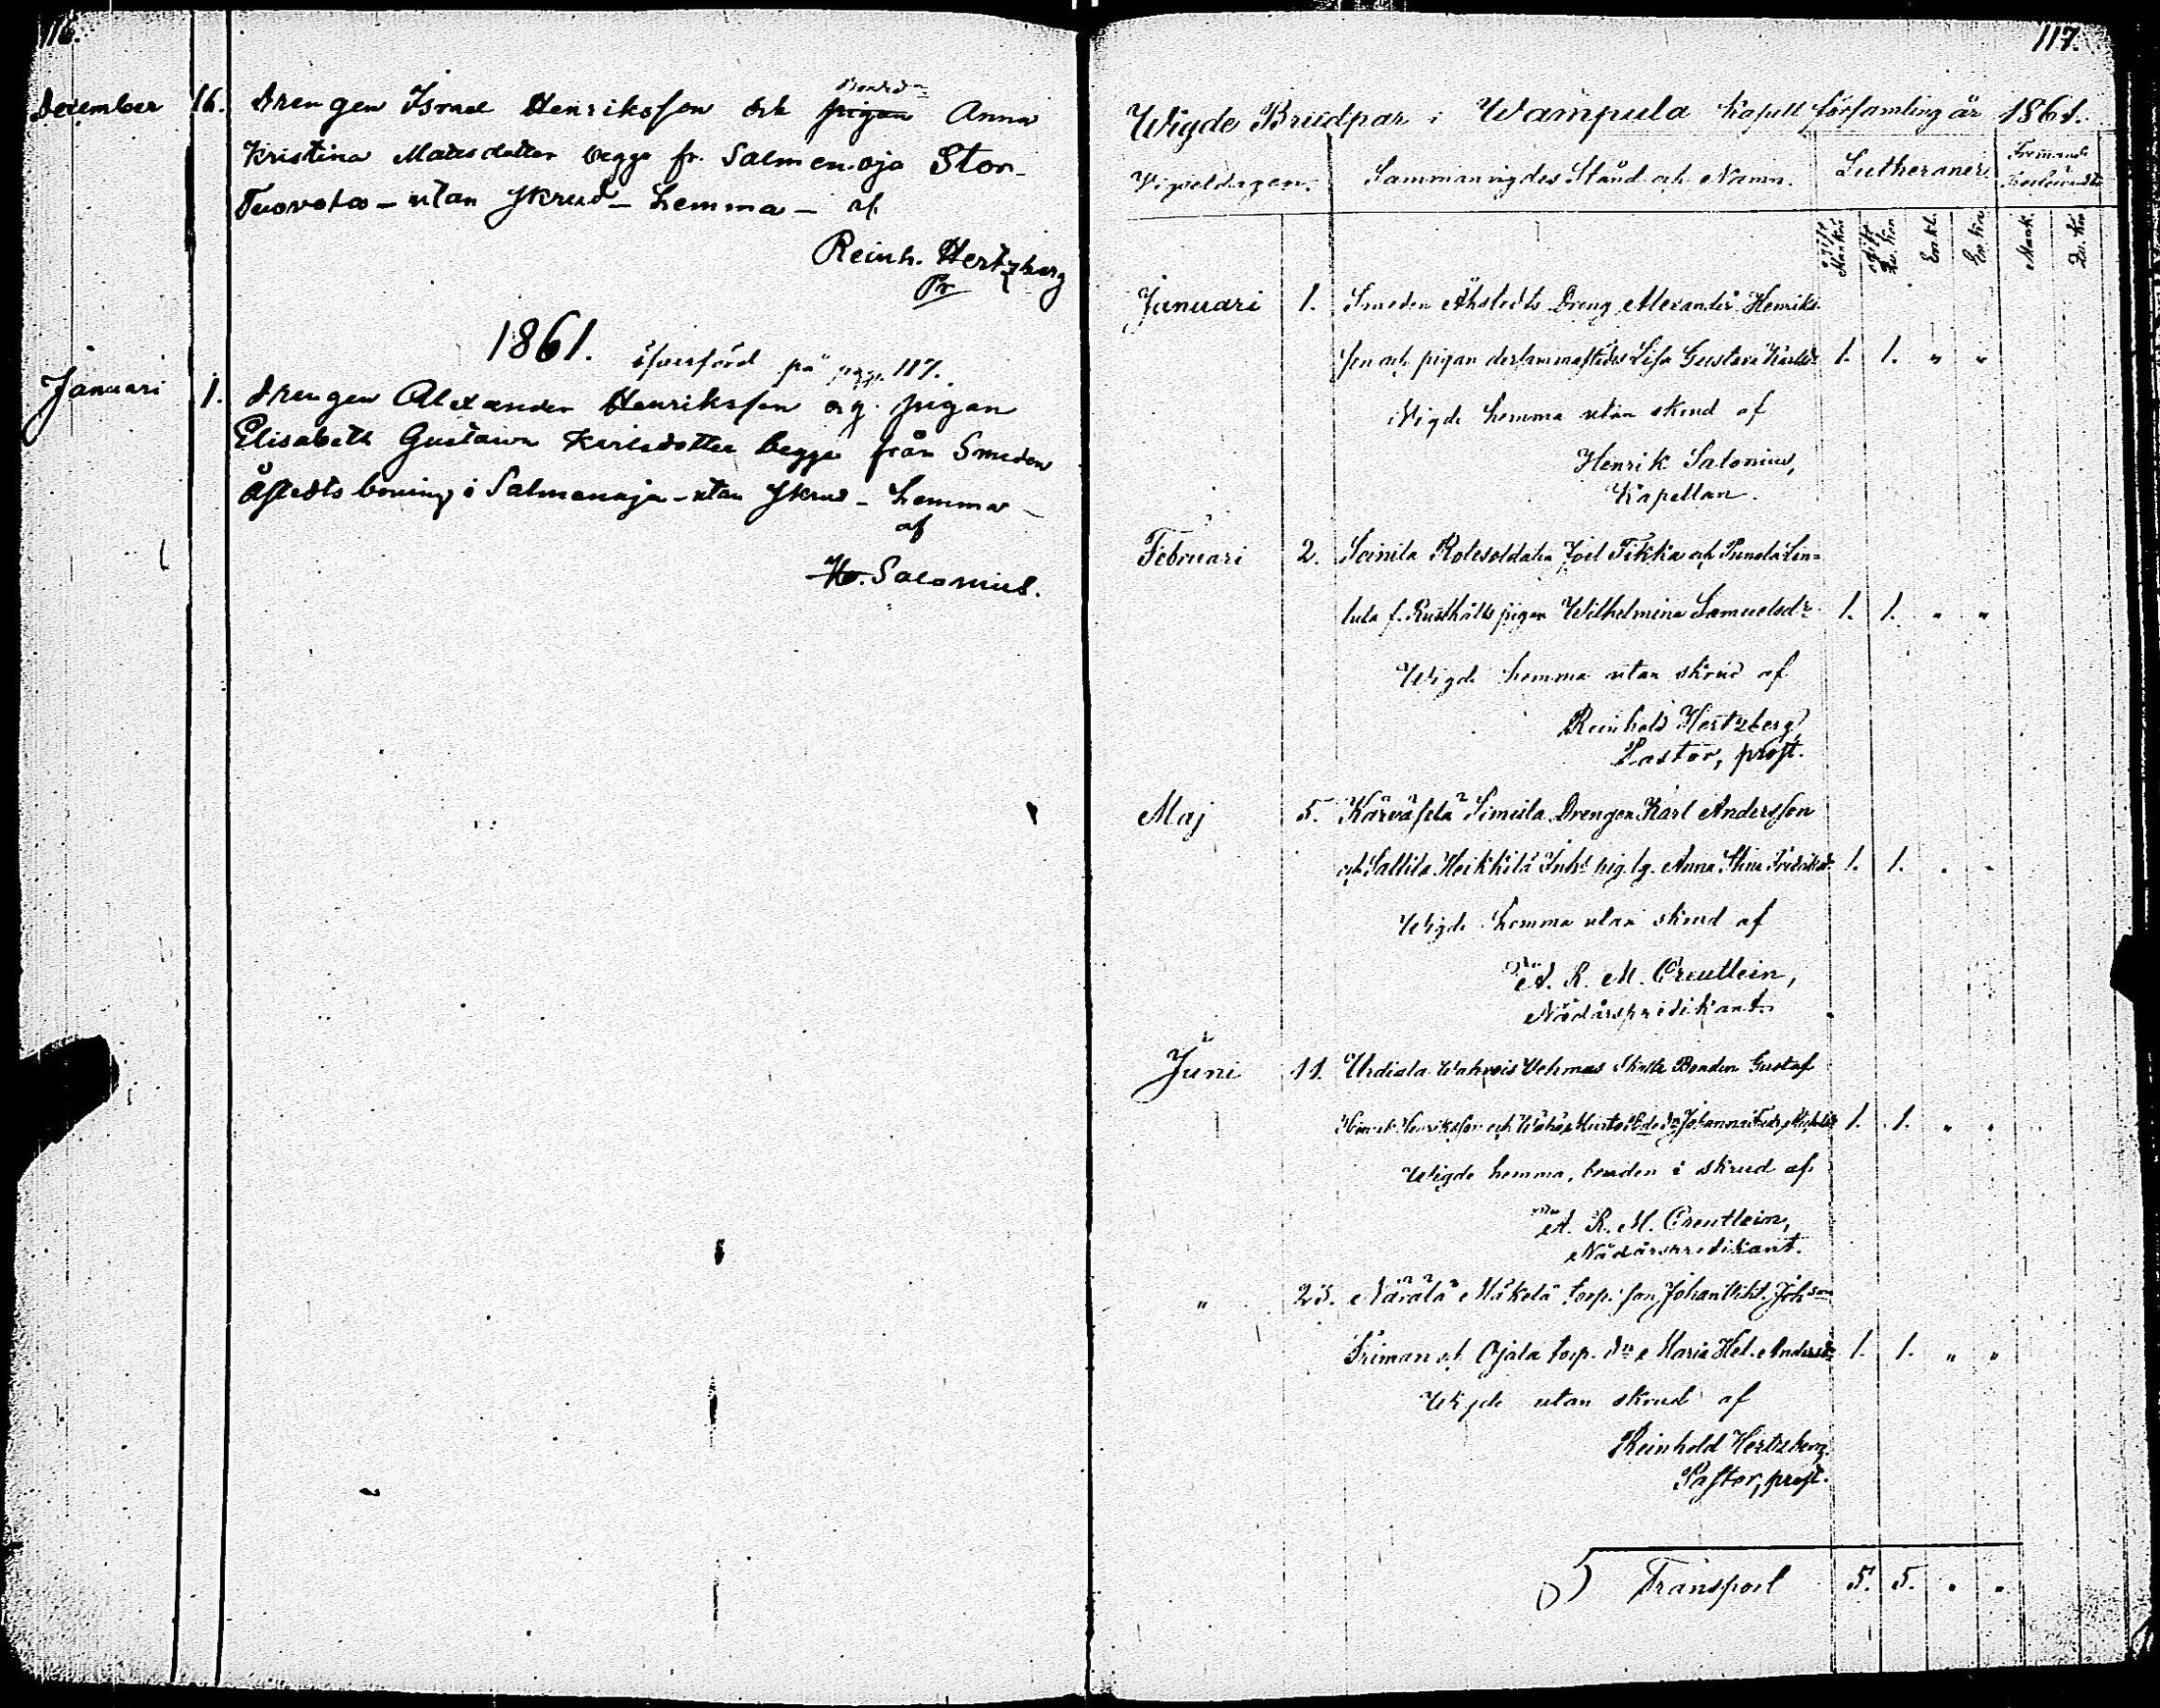 116.
December 16. Drengen Israel Henriksson och pigan Anna
Kristina Matsdotter begge fr. Salmenoja Stor-
Tuovola – utan skrud – hemma – af
Reinh. Hertzberg
Pr
1861.
öfverförd på pag. 117.
Januari 1. Drengen Alexander Henriksson og pigan
Elisabeth Gustava Karlsdotter begge från Smeden
Åstedts boning i Salmenoja – utan skrud – hemma –
af
Salonius.
117.
Wigde Brudpar i Wampula Kapell församling år 1861.
Vigseldagen. Sammanvigdes Stånd och Namn. Lutheraner.
Enkl. Mank.
Januari 1. Smeden Åhstedts Dreng Alexander Henriks-
son och pigan dersammastädes Lisa Gustava Karlsdr 1. 1. " "
Wigde hemma utan skrud af
Henrik Salonius,
Kapellan.
Februari 2. Soinila Rotesoldaten Joel Tikka och Punola
f. Rusthålls pigan Wilhelmina Samuelsdr 1. 1. " "
Wigde hemma utan skrud af
Reinhold Hertzberg,
Pastor, prost.
Maj 5. Simula Drengen Karl Andersson
och Sallila Heikkilä Inhs pig. Anna Stina 1. 1. " "
Wigde hemma utan skrud af
A. R. M. Creutlein,
Nådårspredikant.
Juni 11. Urdiala Skatte Bonden Gustaf
Henriksson och Johanna 1. 1. " "
Wigde hemma, bruden i skrud af
A. R. M. Creutlein,
Nådårspredikant.
" 23. Närälä Mäkelä torp. son Johan Vilh. Johson
Friman och Ojala torp. dr Maria Hel. Andersdr 1. 1. " "
Wigde utan skrud af
Reinhold Hertzberg.
Pastor, prost.
5 Transport 5. 5. " "